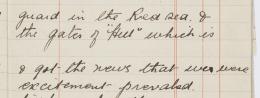 guard in the Red sea. &
the gates of "Hell" which is
& got the news that we were
excitement prevailed.